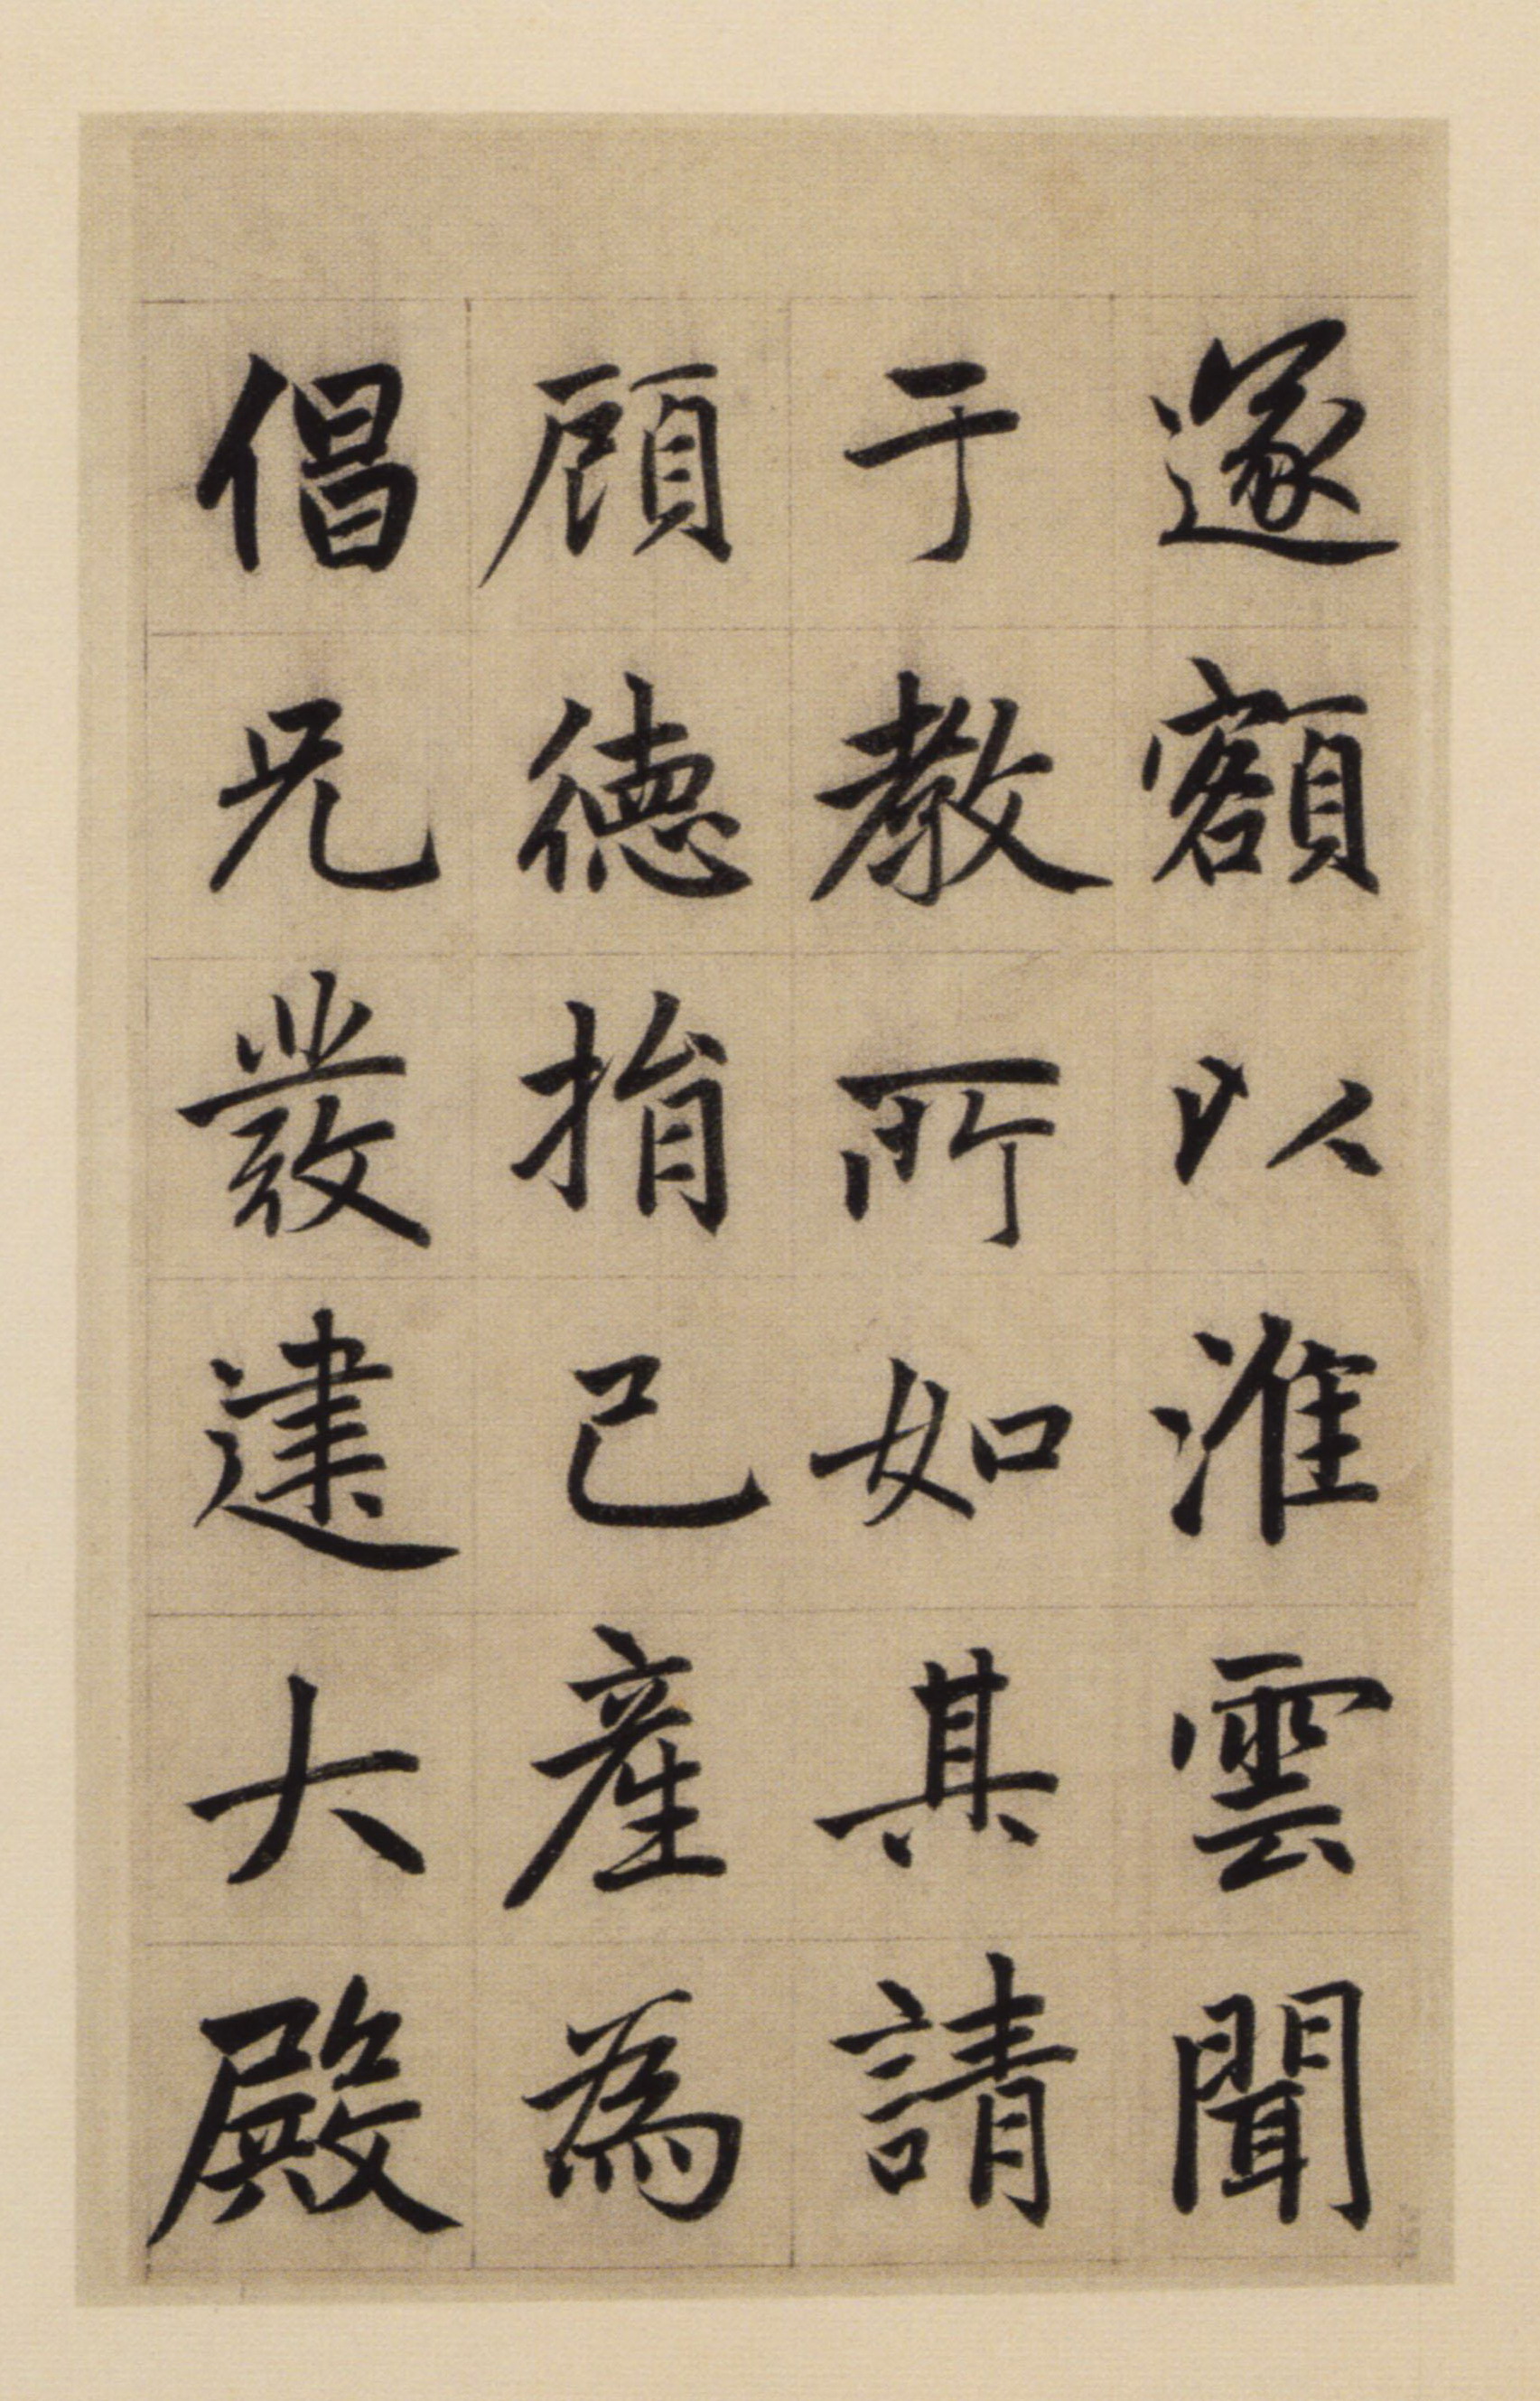 遂額以淮雲聞
于教所如其請
顧德捐己産為
倡凡發建大殿